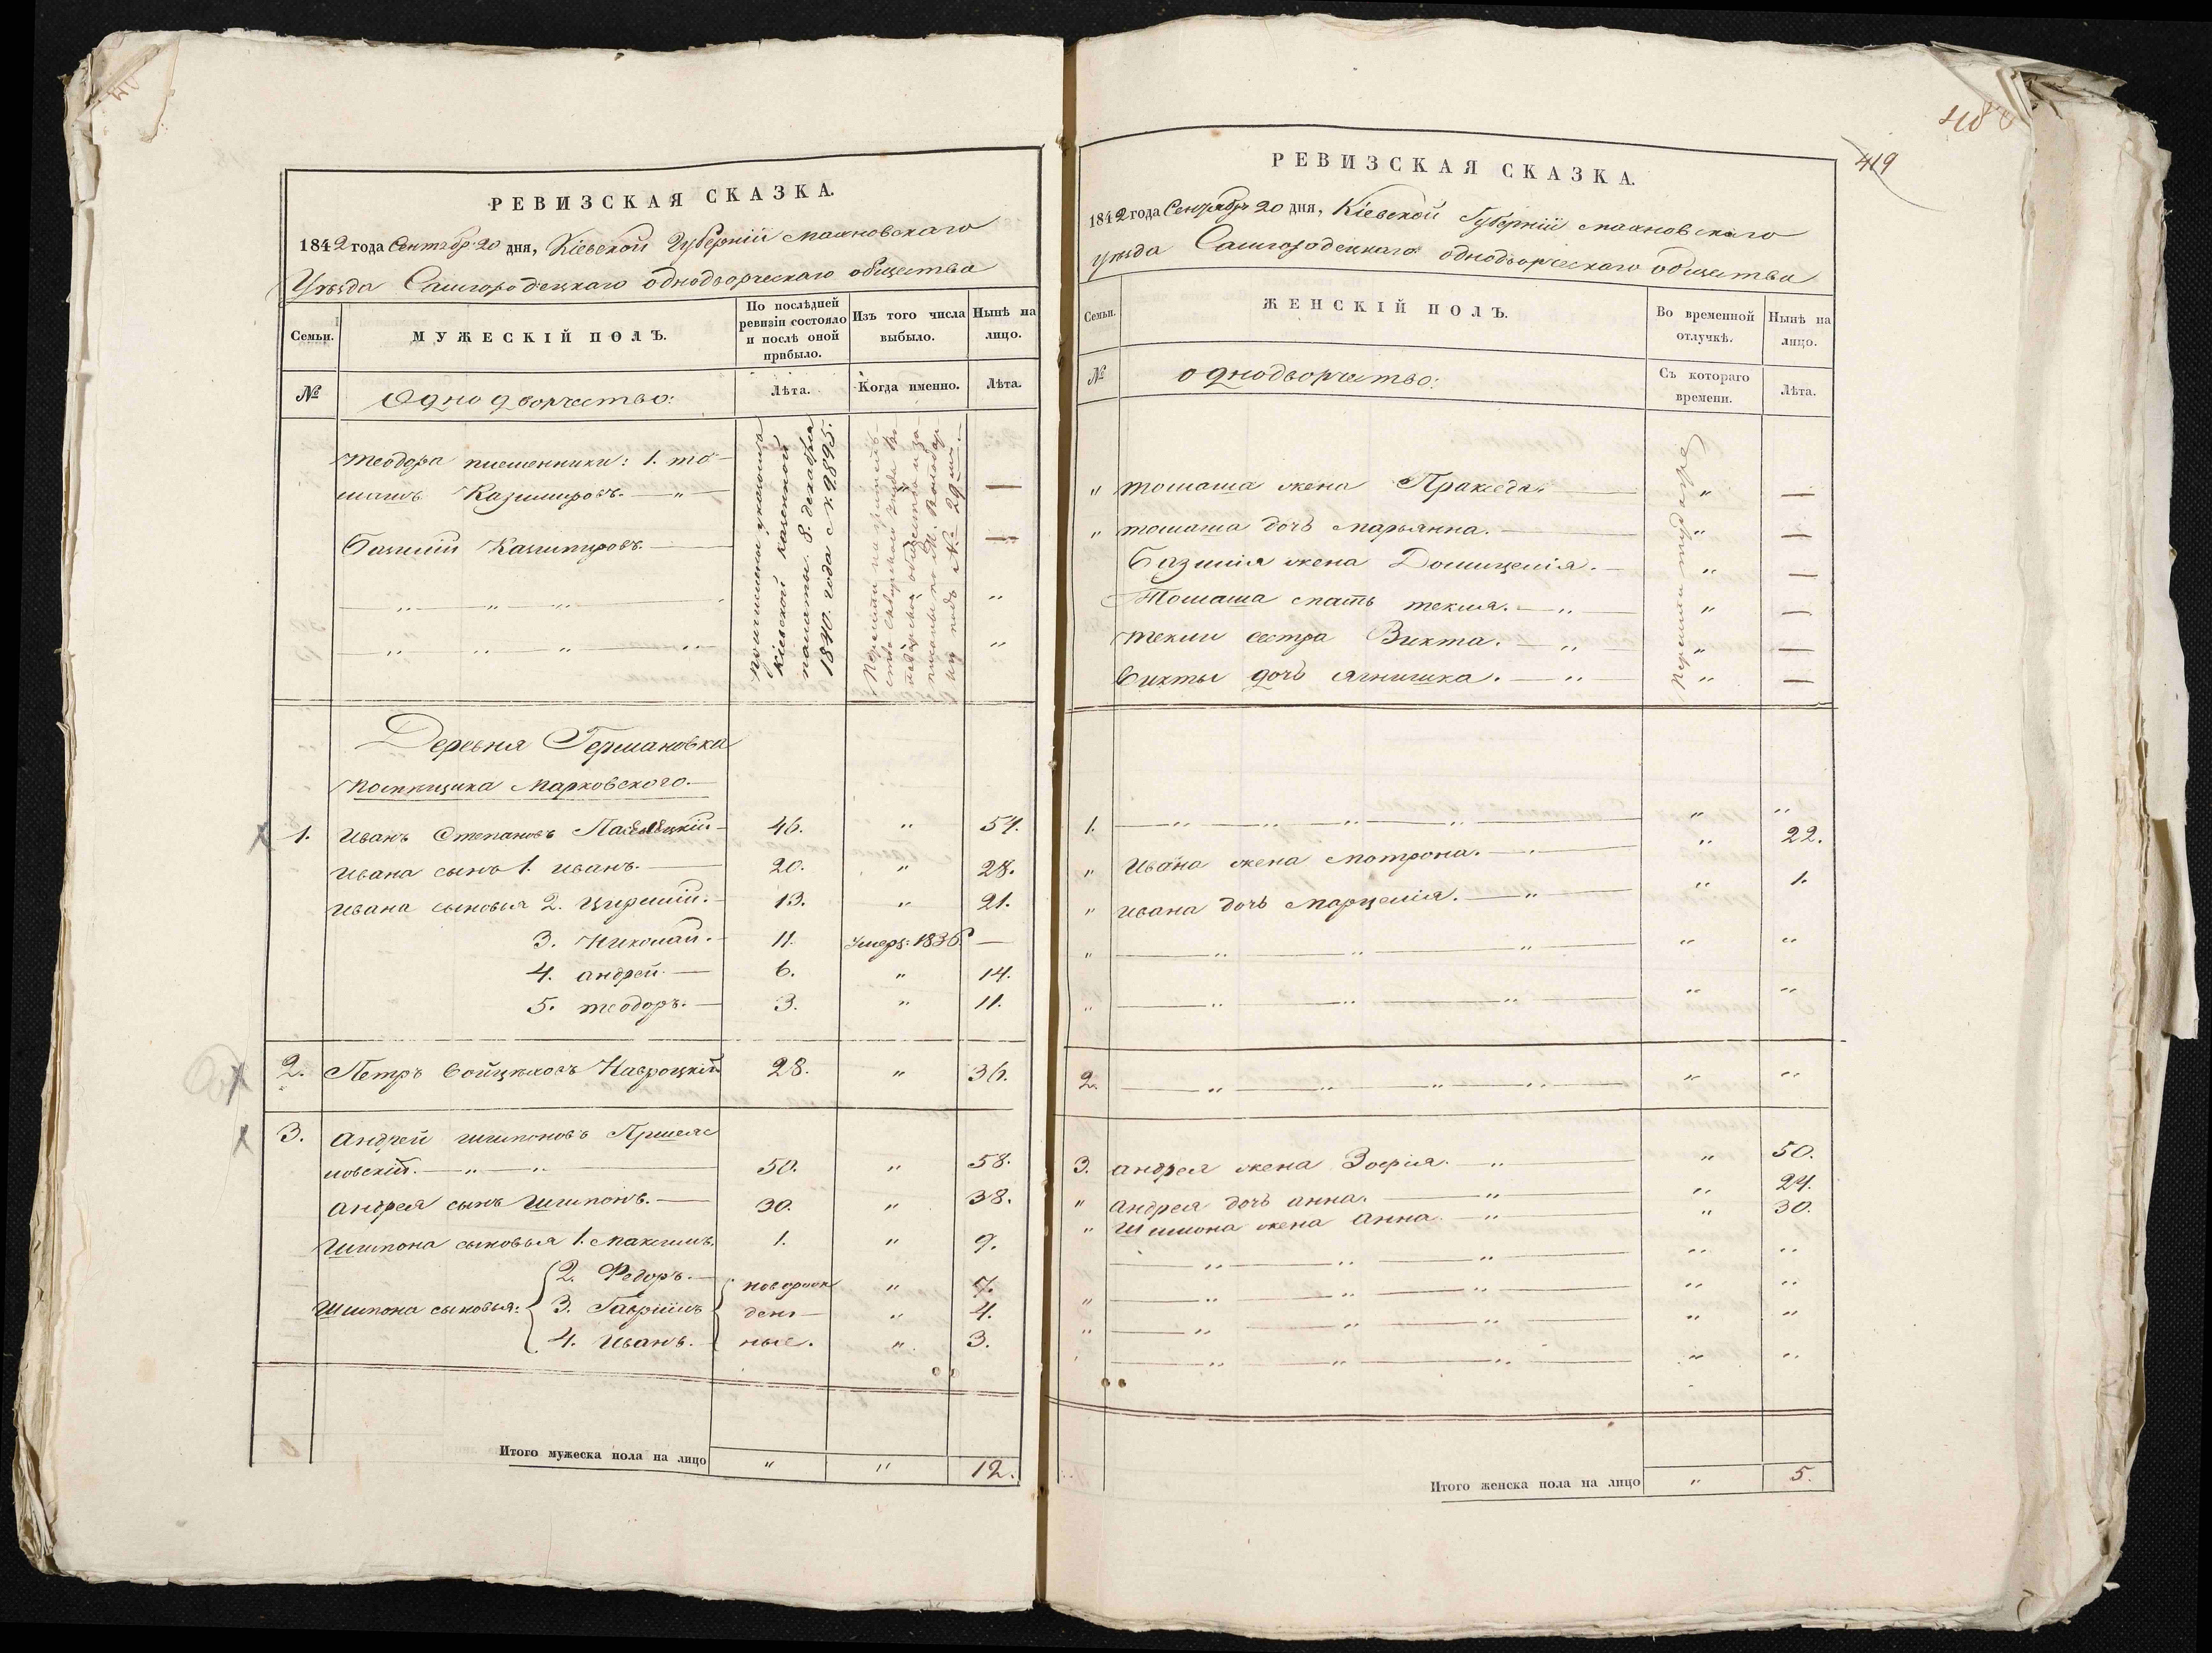 РЕВИЗСКАЯ СКАЗКА.
1842 года Сентябр. 20 дня, Кіевской Губерніи Махновскаго
Уѣзда Самгородецкаго однодворческаго общества
Семьи.
МУЖЕСКІЙ ПОЛЪ.
По послѣдней ревизіи состояло и послѣ оной прибыло.
Изъ того числа выбыло.
Нынѣ на лицо.
№
Однодворчество:
Лѣта.
Когда именно.
Лѣта.
Теодора племенники: 1. То-
машъ Казимировъ. — „ —
Базилій Казимировъ. —
— „ — „ — „ — „
— „ — „ — „ — „ „
причислены указомъ
Кіевской Казенной
палаты 8. декабря
1840. года № 49895.
Деревня Германовка
помѣщика Марковскаго.
1. Иванъ Степановъ 46. „ 54.
Ивана сынъ 1. Иванъ. — 20. „ 28.
Ивана сыновья 2. Цирилій. — 13. „ 21.
3. Николай. — 11. умеръ: 1836. —
4. Андрей. — 6. „ 14.
5. Теодоръ. — 3. „ 11.
2. Петръ Войцѣховъ Навроцкій 28. „ 36.
3. Андрей Шимоновъ
ловскій. — „ — „ — 50. „ 58.
Андрея сынъ Шимонъ. — 30. „ 38.
Шимона сыновья 1. Максимъ. 1. „ 9.
2. Ѳедоръ. — новорож „ 7.
Шимона сыновья: 3. Гавріилъ ден— „ 4.
4. Иванъ. — ные. „ 3.
Итого мужеска пола на лицо „ „ 12.
418
419
РЕВИЗСКАЯ СКАЗКА.
1842 года Сентябр 20 дня, Кіевской Губерніи Махновскаго
уѣзда Самгородецкаго однодворческаго общества
Семьи.
ЖЕНСКІЙ ПОЛЪ.
Во временной отлучкѣ.
Нынѣ на лицо.
№
однодворчество:
Съ котораго времени.
Лѣта.
„ Томаша жена Пракседа. — „ —
„ Томаша дочь Марьянна. — „ —
Базилія жена Домицелія. — „ —
Томаша мать Текля. — „ — „ —
Текли сестра Викта. — „ — „ —
Викты дочь Агнишка. — „ — „ —
1. — „ — „ — „ — „ — „ „
„ Ивана жена Мотрона. — „ — „ 22.
„ Ивана дочь Марцелія. — „ — „ 1.
„ — „ — „ — „ — „ „
„ — „ — „ — „ — „ „
2. — „ — „ — „ — „ — „ „
3. Андрея жена Зофия. — „ — „ 50.
„ Андрея дочь Анна. — „ — „ 24.
„ Шимона жена Анна. — „ — „ 30.
— „ — „ — „ — „ „
„ — „ — „ — „ — „ „
„ — „ — „ — „ — „ „
„ — „ — „ — „ — „ „
Итого женска пола на лицо „ 5.